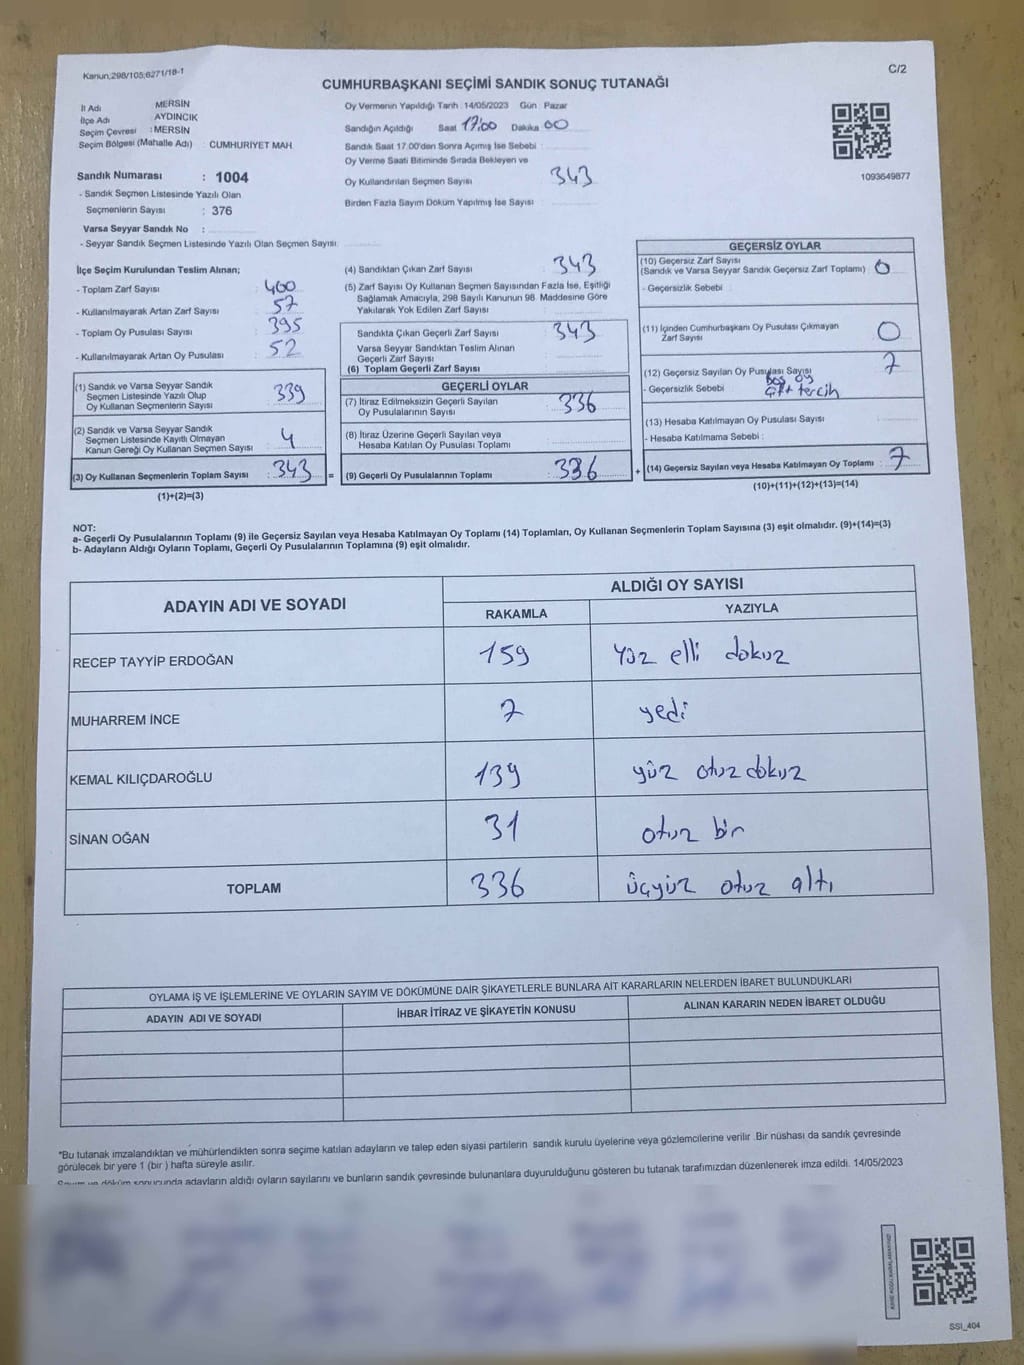 Kanun;298/105;6271/18-1
C/2
CUMHURBAŞKANI SEÇİMİ SANDIK SONUÇ TUTANAĞI
İl Adı MERSİN
İlçe Adı AYDINCIK
Seçim Çevresi : MERSİN
Seçim Bölgesi (Mahalle Adı) : CUMHURİYET MAH.
Sandık Numarası : 1004
- Sandık Seçmen Listesinde Yazılı Olan
Seçmenlerin Sayısı : 376
Varsa Seyyar Sandık No :
- Seyyar Sandık Seçmen Listesinde Yazılı Olan Seçmen Sayısı:
Oy Vermenin Yapıldığı Tarih : 14/05/2023 Gün : Pazar
Sandığın Açıldığı Saat 17:00 Dakika 00
Sandık Saat 17.00'den Sonra Açımış İse Sebebi :
Oy Verme Saati Bitiminde Sırada Bekleyen ve
Oy Kullandırılan Seçmen Sayısı 343
Birden Fazla Sayım Döküm Yapılmış İse Sayısı :
1093649877
İlçe Seçim Kurulundan Teslim Alınan;
- Toplam Zarf Sayısı : 400
- Kullanılmayarak Artan Zarf Sayısı : 57
- Toplam Oy Pusulası Sayısı : 395
- Kullanılmayarak Artan Oy Pusulası : 52
(1) Sandık ve Varsa Seyyar Sandık
Seçmen Listesinde Yazılı Olup
Oy Kullanan Seçmenlerin Sayısı : 339
(2) Sandık ve Varsa Seyyar Sandık
Seçmen Listesinde Kayıtlı Olmayan
Kanun Gereği Oy Kullanan Seçmen Sayısı : 4
(3) Oy Kullanan Seçmenlerin Toplam Sayısı : 343
(1)+(2)=(3)
(4) Sandıktan Çıkan Zarf Sayısı : 343
(5) Zarf Sayısı Oy Kullanan Seçmen Sayısından Fazla İse, Eşitliği
Sağlamak Amacıyla, 298 Sayılı Kanunun 98. Maddesine Göre
Yakılarak Yok Edilen Zarf Sayısı :
Sandıkta Çıkan Geçerli Zarf Sayısı : 343
Varsa Seyyar Sandıktan Teslim Alınan
Geçerli Zarf Sayısı :
(6) Toplam Geçerli Zarf Sayısı :
GEÇERLİ OYLAR
(7) İtiraz Edilmeksizin Geçerli Sayılan
Oy Pusulalarının Sayısı : 336
(8) İtiraz Üzerine Geçerli Sayılan veya
Hesaba Katılan Oy Pusulası Toplamı :
= (9) Geçerli Oy Pusulalarının Toplamı : 336
GEÇERSİZ OYLAR
(10) Geçersiz Zarf Sayısı
(Sandık ve Varsa Seyyar Sandık Geçersiz Zarf Toplamı) : 0
- Geçersizlik Sebebi :
(11) İçinden Cumhurbaşkanı Oy Pusulası Çıkmayan
Zarf Sayısı 0
(12) Geçersiz Sayılan Oy Pusulası Sayısı 7
- Geçersizlik Sebebi : Boş oy
Çift tercih
(13) Hesaba Katılmayan Oy Pusulası Sayısı :
- Hesaba Katılmama Sebebi :
+ (14) Geçersiz Sayılan veya Hesaba Katılmayan Oy Toplamı : 7
(10)+(11)+(12)+(13)=(14)
NOT:
a- Geçerli Oy Pusulalarının Toplamı (9) ile Geçersiz Sayılan veya Hesaba Katılmayan Oy Toplamı (14) Toplamları, Oy Kullanan Seçmenlerin Toplam Sayısına (3) eşit olmalıdır. (9)+(14)=(3)
b- Adayların Aldığı Oyların Toplamı, Geçerli Oy Pusulalarının Toplamına (9) eşit olmalıdır.
ADAYIN ADI VE SOYADI
ALDIĞI OY SAYISI
RAKAMLA YAZIYLA
RECEP TAYYİP ERDOĞAN 159 Yüz elli dokuz
MUHARREM İNCE 7 yedi
KEMAL KILIÇDAROĞLU 139 yüz otuz dokuz
SİNAN OĞAN 31 otuz bir
TOPLAM 336 üçyüz otuz altı
OYLAMA İŞ VE İŞLEMLERİNE VE OYLARIN SAYIM VE DÖKÜMÜNE DAİR ŞİKAYETLERLE BUNLARA AİT KARARLARIN NELERDEN İBARET BULUNDUKLARI
ADAYIN ADI VE SOYADI İHBAR İTİRAZ VE ŞİKAYETİN KONUSU ALINAN KARARIN NEDEN İBARET OLDUĞU
*Bu tutanak imzalandıktan ve mühürlendikten sonra seçime katılan adayların ve talep eden siyasi partilerin sandık kurulu üyelerine veya gözlemcilerine verilir .Bir nüshası da sandık çevresinde
görülecek bir yere 1 (bir ) hafta süreyle asılır.
Sayım ve döküm sonucunda adayların aldığı oyların sayılarını ve bunların sandık çevresinde bulunanlara duyurulduğunu gösteren bu tutanak tarafımızdan düzenlenerek imza edildi. 14/05/2023
SSI_404